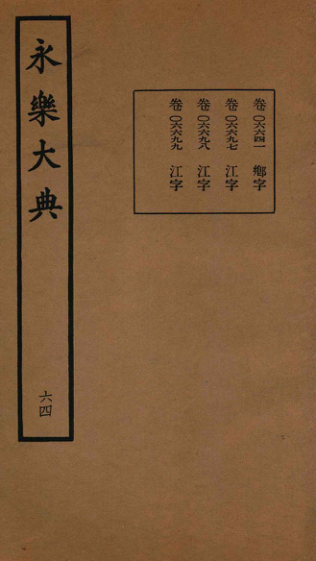 永樂大典
六四
卷〇六六四一 鄉字
卷〇六六九七 江字
卷〇六六九八 江字
卷〇六六九九 江字